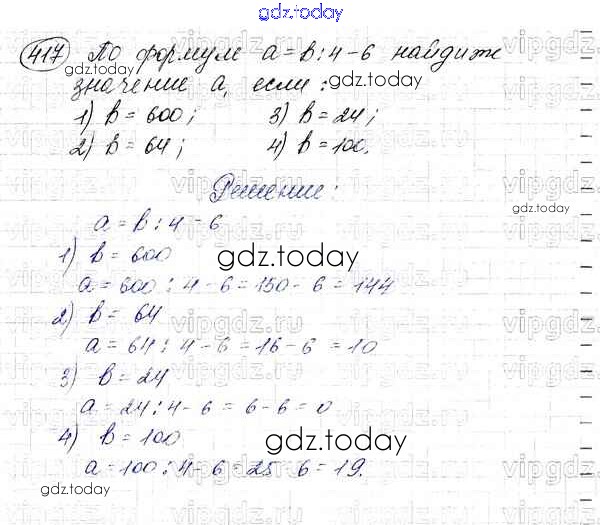 gdz.today
417 По формуле a = b : 4 - 6 найдите
gdz.today
значение a, если : gdz.today
1) b = 600; 3) b = 24;
2) b = 64; 4) b = 100.
vipgdz.ru
Решение:
gdz.today
a = b : 4 - 6
1) b = 600
gdz.today
a = 600 : 4 - 6 = 150 - 6 = 144
2) b = 64
vipgdz.ru
a = 64 : 4 - 6 = 16 - 6 = 10
3) b = 24
a = 24 : 4 - 6 = 6 - 6 = 0
4) b = 100
gdz.today
a = 100 : 4 - 6 = 25 - 6 = 19.
gdz.today
vipgdz.ru